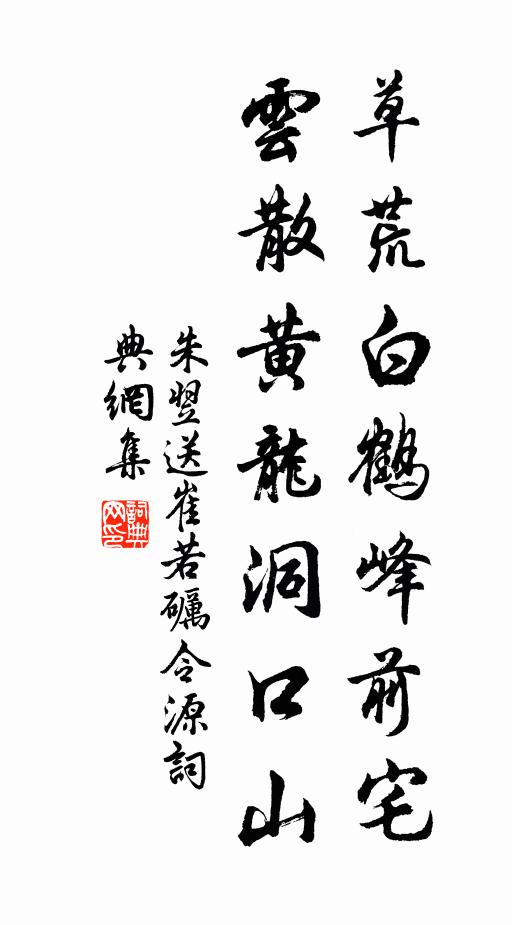 草荒白鶴峰前宅
雲散黃龍洞口山
朱翌送崔若礪令源詞
典網集
詞典
网印